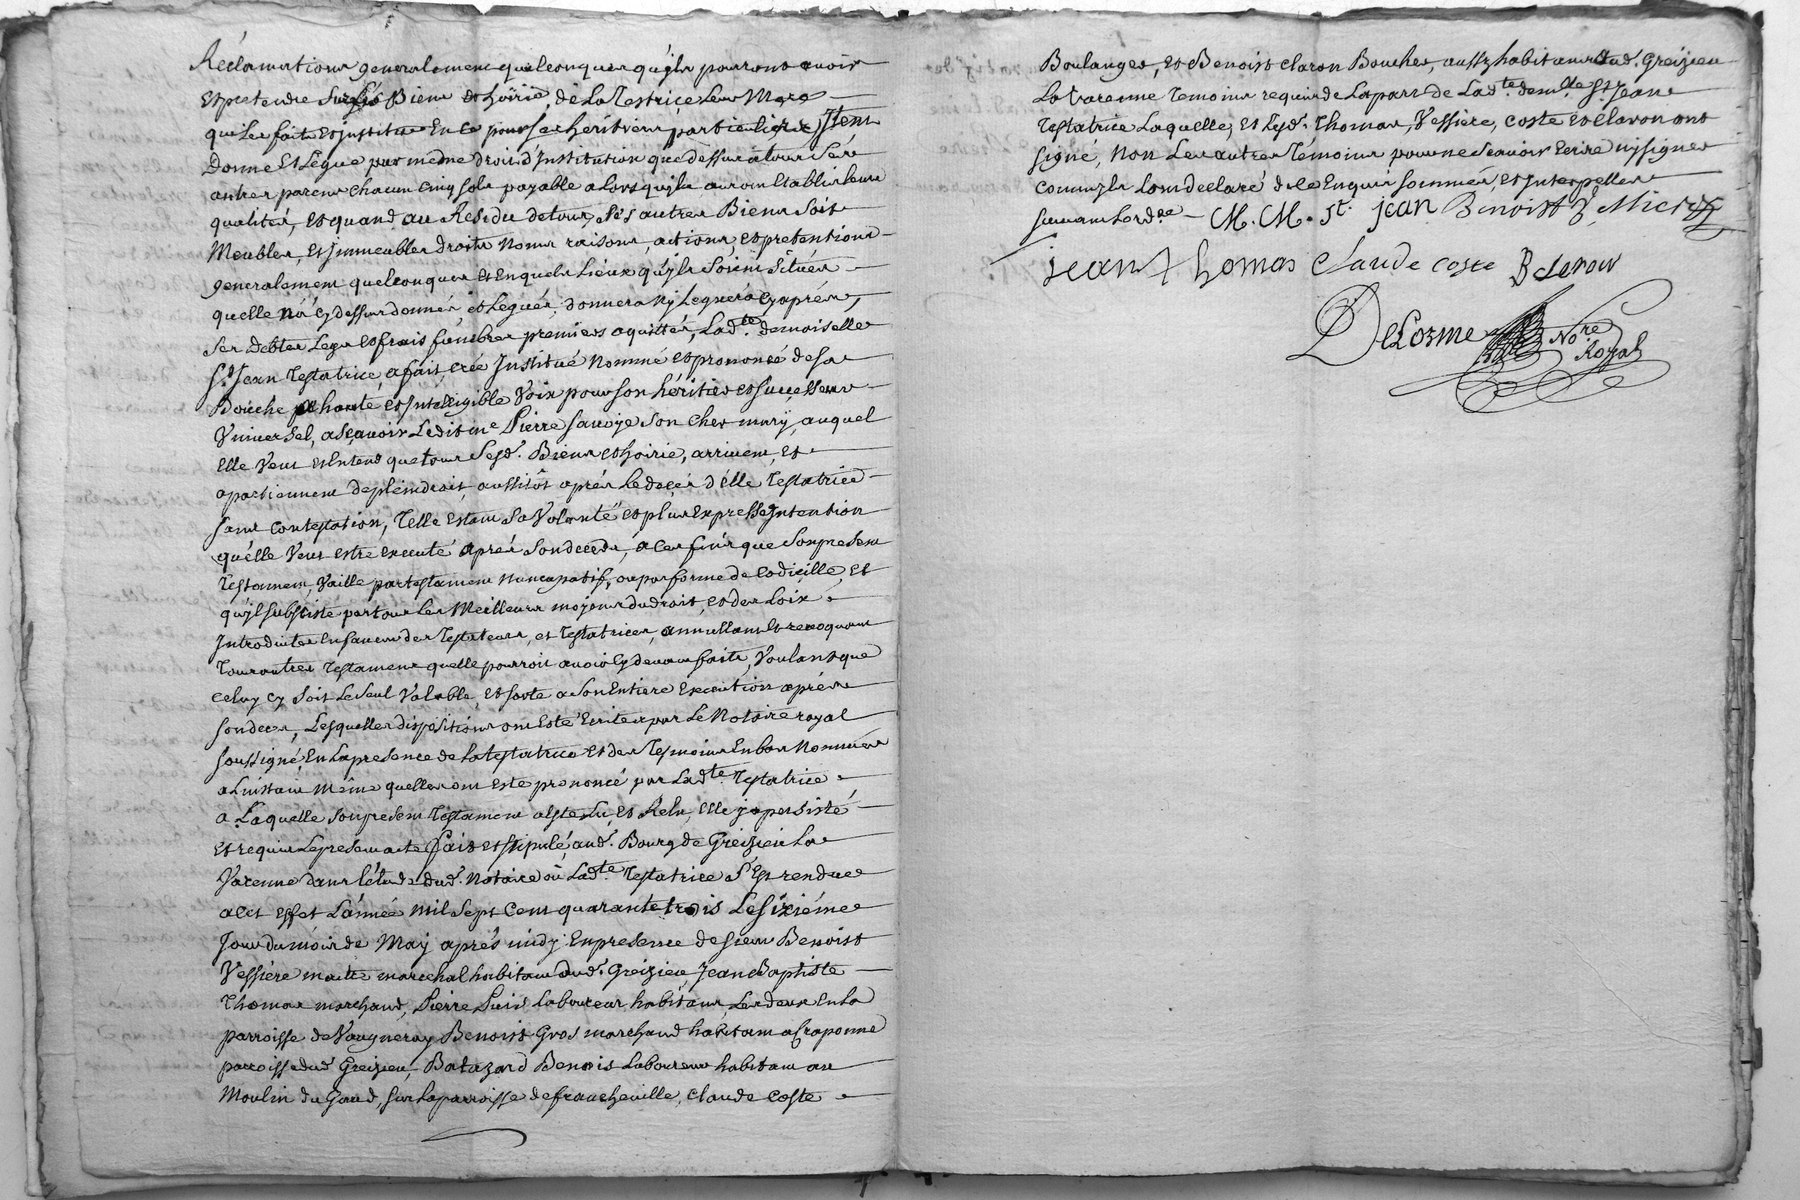 Réclamations generalement quelconques quéjls pourront avoir
Et pretendre sur les Biens et hoirie, de La Testatrice Leur Mere
qui Les fait et jnstitue En ce pour ses héritiers particuliers, Jtem
Donne Et Lègue par même droit d'Institution que dessus à tous ses
autres parens chacun cinq sols payable a Lors qu'jls auront Etablis leurs
qualités, et quand au Residu de tous, ses autres Biens soit
Meubles, et jmmeubles droits noms raisons actions, et pretentions
generalement quelconques et En quels Lieux qu'jls soient situés
quelle n'a cy dessus donnés, et Legués, donnera ny Leguera cy aprés,
ses debtes Legs et frais funebres premiers aquittés, Lad.te demoiselle
S.t Jean Testatrice, a fait, créé Institué Nommé et prononcé de sa
Bouche a haute et Intelligible Voix pour son héritier et successeur
Vniversel, a sçavoir Ledit me Pierre Savoye son cher mary, auquel
Elle Veut et Entend que tous sesd. Biens et hoirie, arrivent, et
apartiennent de plein droit, aussitôt aprés Le decés d'elle Testatrice
sans contestation, Telle Estant sa Volonté et plus Expresse Intention
qu'elle Veut estre executé aprés son decés, a ces fins que son present
Testament, Vaille par testament nuncupatif, ou par forme de codicille, et
qu'jl subsiste par tous les Meilleurs moyens du droit, et des Loix
Introduites En faveur des Testateurs, et Testatrices, annullant et revoquant
Tous autres Testaments quelle pourroit avoir cy devant faits, Voulant que
celuy cy soit Le seul Valable, et sorte a son Entiere Execution aprés
son decés, Lesquelles dispositions ont Esté Ecrites par Le Notaire royal
soussigné, En La presence de La testatrice Et des Tesmoins En bas Nommés
a Linstant même quelles ont esté prononcé par Lad.te Testatrice
a Laquelle son present Testament a esté Lu, et Relu, Elle y a persisté
Et requis Le present acte fait et stipulé, aud. Bourg de Greizieu La
Varenne dans l'étude dud. Notaire où Lad.te Testatrice s'Est rendue
a cet effet L'année mil sept cent quarante trois Le sixiéme
Jour du mois de May aprés midy En presence de sieur Benoist
Vessiere maitre marechal habitant dud. Greizieu Jean Baptiste
Thomas marchand, Pierre Puis Laboureur habitans, Les deux En La
parroisse de Vaugneray Benoist Gros marchand habitant a Craponne
parroisse dud. Greizieu, Batazard Benois Laboureur habitant au
Moulin du Gaud, sur La parroisse de francheville, Claude Coste
Boulanger, et Benoist Claron Boucher, aussy habitans dud. Greizieu
La Varenne Temoins requis de La part de Lad.te dem.lle S.t Jean
Testatrice Laquelle, et Lesd. Thomas, Vessiere, Coste et Claron ont
signé, Non Les autres Témoins pour ne sçavoir Ecrire ny signer
comm' jls L'ont declaré de ce Enquis sommés, et Interpellés
suivant L'ord.ce M. M. St. jean Benoist
jean Thomas Claude Coste B Claron
DeLorme No.re
Royal